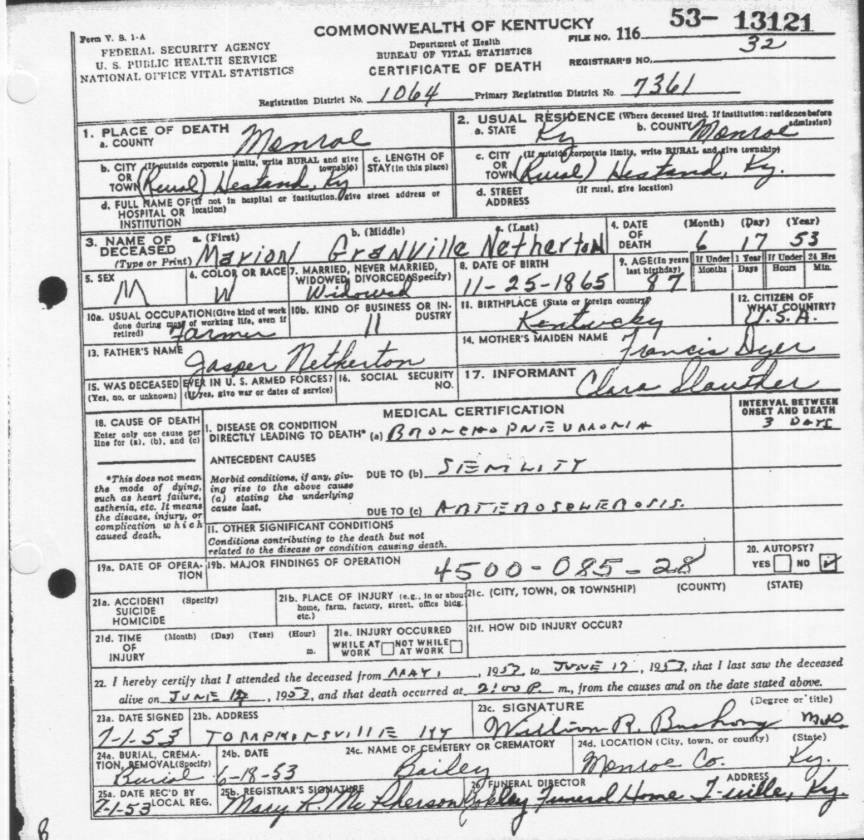 Form V. S. 1-A
FEDERAL SECURITY AGENCY
U. S. PUBLIC HEALTH SERVICE
NATIONAL OFFICE VITAL STATISTICS
COMMONWEALTH OF KENTUCKY
Department of Health
BUREAU OF VITAL STATISTICS
CERTIFICATE OF DEATH
53- 13121
FILE NO. 116
REGISTRAR'S NO. 32
Registration District No. 1064 Primary Registration District No. 7361
1. PLACE OF DEATH
a. COUNTY Monroe
2. USUAL RESIDENCE (Where deceased lived. If institution: residence before admission)
a. STATE Ky b. COUNTY Monroe
b. CITY (If outside corporate limits, write RURAL and give township)
OR TOWN (Rural) Hestand, Ky
c. LENGTH OF STAY (in this place)
c. CITY (If outside corporate limits, write RURAL and give township)
OR TOWN (Rural) Hestand, Ky.
d. FULL NAME OF (If not in hospital or institution, give street address or location)
HOSPITAL OR
INSTITUTION
d. STREET ADDRESS (If rural, give location)
3. NAME OF DECEASED (Type or Print)
a. (First) b. (Middle) c. (Last)
Marion Granville Netherton
4. DATE OF DEATH (Month) (Day) (Year)
6 17 53
5. SEX M
6. COLOR OR RACE W
7. MARRIED, NEVER MARRIED, WIDOWED, DIVORCED (Specify) Widowed
8. DATE OF BIRTH 11-25-1865
9. AGE (In years last birthday) 87
If Under 1 Year Months Days
If Under 24 Hrs Hours Min.
10a. USUAL OCCUPATION (Give kind of work done during most of working life, even if retired) Farmer
10b. KIND OF BUSINESS OR INDUSTRY 11
11. BIRTHPLACE (State or foreign country) Kentucky
12. CITIZEN OF WHAT COUNTRY? U.S.A.
13. FATHER'S NAME Jasper Netherton
14. MOTHER'S MAIDEN NAME Francis Dyer
15. WAS DECEASED EVER IN U. S. ARMED FORCES?
(Yes, no, or unknown) (If yes, give war or dates of service)
16. SOCIAL SECURITY NO.
17. INFORMANT Clara
18. CAUSE OF DEATH
Enter only one cause per line for (a), (b), and (c)
*This does not mean the mode of dying, such as heart failure, asthenia, etc. It means the disease, injury, or complication which caused death.
MEDICAL CERTIFICATION
INTERVAL BETWEEN ONSET AND DEATH
I. DISEASE OR CONDITION DIRECTLY LEADING TO DEATH* (a) BRONCHOPNEUMONIA 3 DAYS
ANTECEDENT CAUSES
Morbid conditions, if any, giving rise to the above cause (a) stating the underlying cause last.
DUE TO (b) SENILITY
DUE TO (c) ARTEROSCLEROSIS.
II. OTHER SIGNIFICANT CONDITIONS
Conditions contributing to the death but not related to the disease or condition causing death.
19a. DATE OF OPERATION
19b. MAJOR FINDINGS OF OPERATION
4500-085-28
20. AUTOPSY?
YES NO
21a. ACCIDENT SUICIDE HOMICIDE (Specify)
21b. PLACE OF INJURY (e.g., in or about home, farm, factory, street, office bldg. etc.)
21c. (CITY, TOWN, OR TOWNSHIP) (COUNTY) (STATE)
21d. TIME OF INJURY (Month) (Day) (Year) (Hour) m.
21e. INJURY OCCURRED
WHILE AT WORK NOT WHILE AT WORK
21f. HOW DID INJURY OCCUR?
22. I hereby certify that I attended the deceased from MAY, 1953, to JUNE 17, 1953, that I last saw the deceased
alive on JUNE 17, 1953, and that death occurred at 2:00 P m., from the causes and on the date stated above.
23a. DATE SIGNED 7-1-53
23b. ADDRESS TOMPKINSVILLE KY
23c. SIGNATURE (Degree or title)
William R. Bushong M.D.
24a. BURIAL, CREMATION, REMOVAL (Specify) Burial
24b. DATE 6-18-53
24c. NAME OF CEMETERY OR CREMATORY Bailey
24d. LOCATION (City, town, or county) (State)
Monroe Co. Ky.
25a. DATE REC'D BY LOCAL REG. 7-1-53
25b. REGISTRAR'S SIGNATURE Mary K. McPherson
26. FUNERAL DIRECTOR ADDRESS
Funeral Home T-ville, Ky.
8